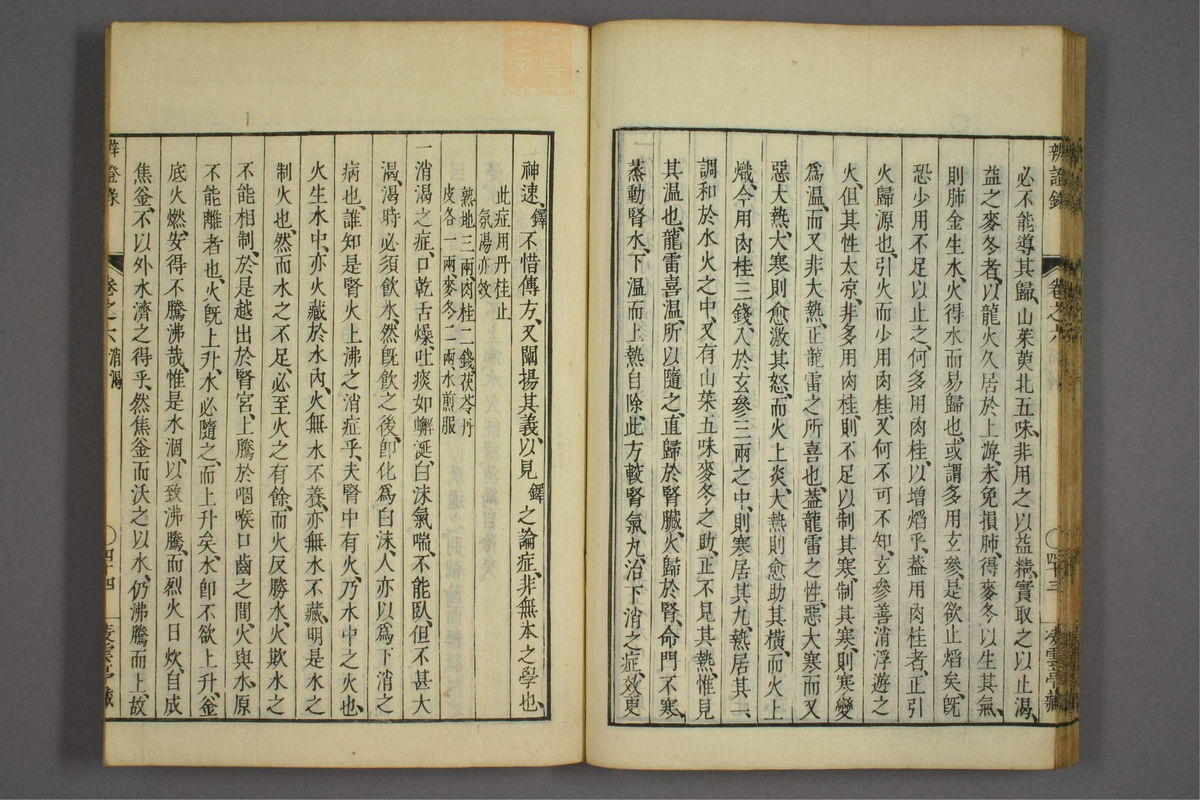 必不能導其歸、山茱萸北五味非用之以益精、實取之以止渴、
益之麥冬者、以龍火久居於上游、未免損肺、得麥冬以生其氣、
則肺金生水、火得水而易歸也、或謂多用玄參、是欲止熖矣、旣
恐少用不足以止之、何多用肉桂、以增熖乎、葢用肉桂者、正引
火歸源也、引火而少用肉桂、又何不可、不知玄參善消浮遊之
火、但其性太凉、非多用肉桂、則不足以制其寒、制其寒、則寒變
爲温、而又非大熱、正龍雷之所喜也、葢龍雷之性、惡大寒而又
惡大熱、大寒則愈激其怒、而火上炎、大熱則愈助其横、而火上
熾、今用肉桂三錢、入於玄參三兩之中、則寒居其九、熱居其一、
調和於水火之中、又有山茱五味麥冬之助、正不見其熱、惟見
其温也、龍雷喜温、所以隨之、直歸於腎臟、火歸於腎、命門不寒、
蒸動腎水、下温而上熱自除、此方較腎氣丸、治下消之症、效更
辨證錄
卷之六
四十三
凌雲亭藏
神速、鐸不惜傳方、又闡揚其義、以見鐸之論症、非無本之學也、
此症用丹桂止
氛湯亦效
熟地三兩、肉桂二錢茯苓丹
皮各一兩、麥冬二兩水煎服
一消渴之症、口乾舌燥、吐痰如蠏涎、白沫氣喘、不能臥、但不甚大
渴、渴時必須飲水、然旣飲之後、卽化爲白沫、人亦以爲下消之
病也、誰知是腎火上沸之消症乎、夫腎中有火、乃水中之火也、
火生水中、亦火藏於水內、火無水不養、亦無水不藏、明是水之
制火也、然而水之不足、必至火之有餘、而火反勝水、火欺水之
不能相制、於是越出於腎宮、上騰於咽喉口齒之間、火與水、原
不能離者也、火旣上升、水必隨之、而上升矣、水卽不欲上升、釜
底火燃、安得不騰沸哉、惟是水涸、以致沸騰、而烈火日炊、自成
焦釜、不以外水濟之得乎、然焦釜而沃之以水、仍沸騰而上、故
辨證錄
卷之六 消渴
四十四
凌雲亭藏